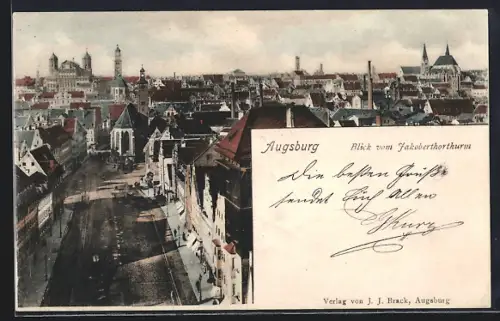 Augsburg
Blick vom Jakoberthorthurm
Die besten Grüße
sendet Euch Allen
Kurz
Verlag von J. J. Brack, Augsburg